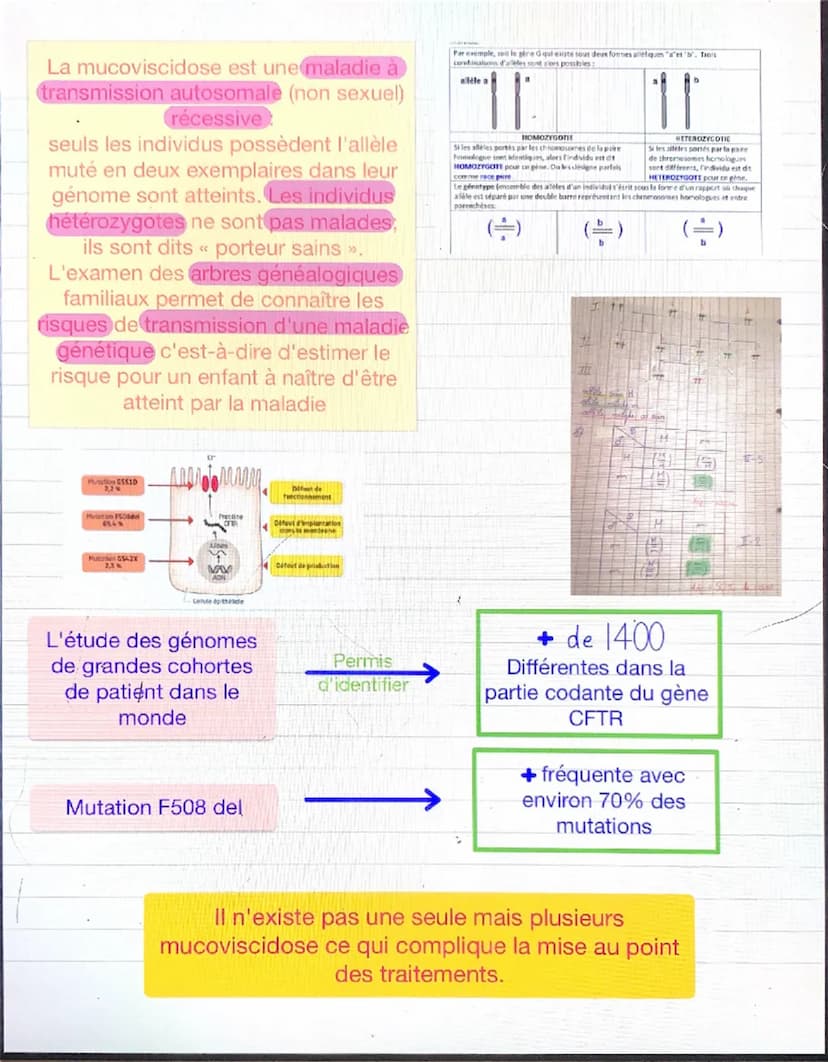 La mucoviscidose est une maladie à
transmission autosomale (non sexuel)
récessive :
seuls les individus possèdent l'allèle
muté en deux exemplaires dans leur
génome sont atteints. Les individus
hétérozygotes ne sont pas malades,
ils sont dits « porteur sains ».
L'examen des arbres généalogiques
familiaux permet de connaître les
risques de transmission d'une maladie
génétique c'est-à-dire d'estimer le
risque pour un enfant à naître d'être
atteint par la maladie
Par exemple, soit le gène G qui existe sous deux formes alléliques "a" et "b". Trois
combinaisons d'allèles sont alors possibles :
allèle a
a
a
b
HOMOZYGOTIE
Si les allèles portés par les chromosomes de la paire
homologue sont identiques, alors l'individu est dit
HOMOZYGOTE pour ce gène. On les désigne parfois
comme race pure.
HETEROZYGOTIE
Si les allèles portés par la paire
de chromosomes homologues
sont différents, l'individu est dit
HETEROZYGOTE pour ce gène.
Le génotype (ensemble des allèles d'un individu) s'écrit sous la forme d'un rapport où chaque
allèle est séparé par une double barre représentant les chromosomes homologues et entre
parenthèses:
a
a
b
b
a
b
I
II
III
M
m
M
m
II-5
M
m
II-2
Cl-
Mutation G551D
2,2 %
Mutation F508del
Mutation G542X
2,3 %
Protéine
CFTR
ARNm
ADN
Défaut de
fonctionnement
Défaut d'implantation
dans la membrane
Défaut de production
Cellule épithéliale
L'étude des génomes
de grandes cohortes
de patient dans le
monde
Permis
d'identifier
+ de 1400
Différentes dans la
partie codante du gène
CFTR
Mutation F508 del
+ fréquente avec
environ 70% des
mutations
Il n'existe pas une seule mais plusieurs
mucoviscidose ce qui complique la mise au point
des traitements.